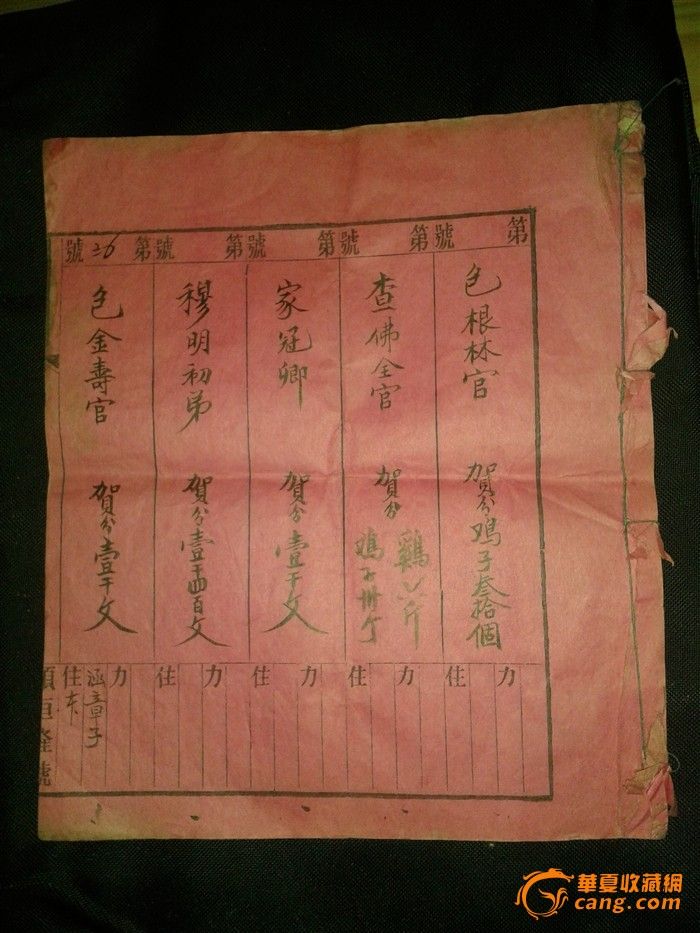 第 號
第 號
第 號
第 號
第 26 號
包根林官 賀分鸡子叁拾個
查佛全官 賀分 鷄
鸡子卅个
家冠卿 賀分壹千文
穆明初弟 賀分壹千四百文
包金壽官 賀分壹千文
力 住
力 住
力 住
力 住
力 涵章子 住
恒隆號
華夏收藏網
cang.com